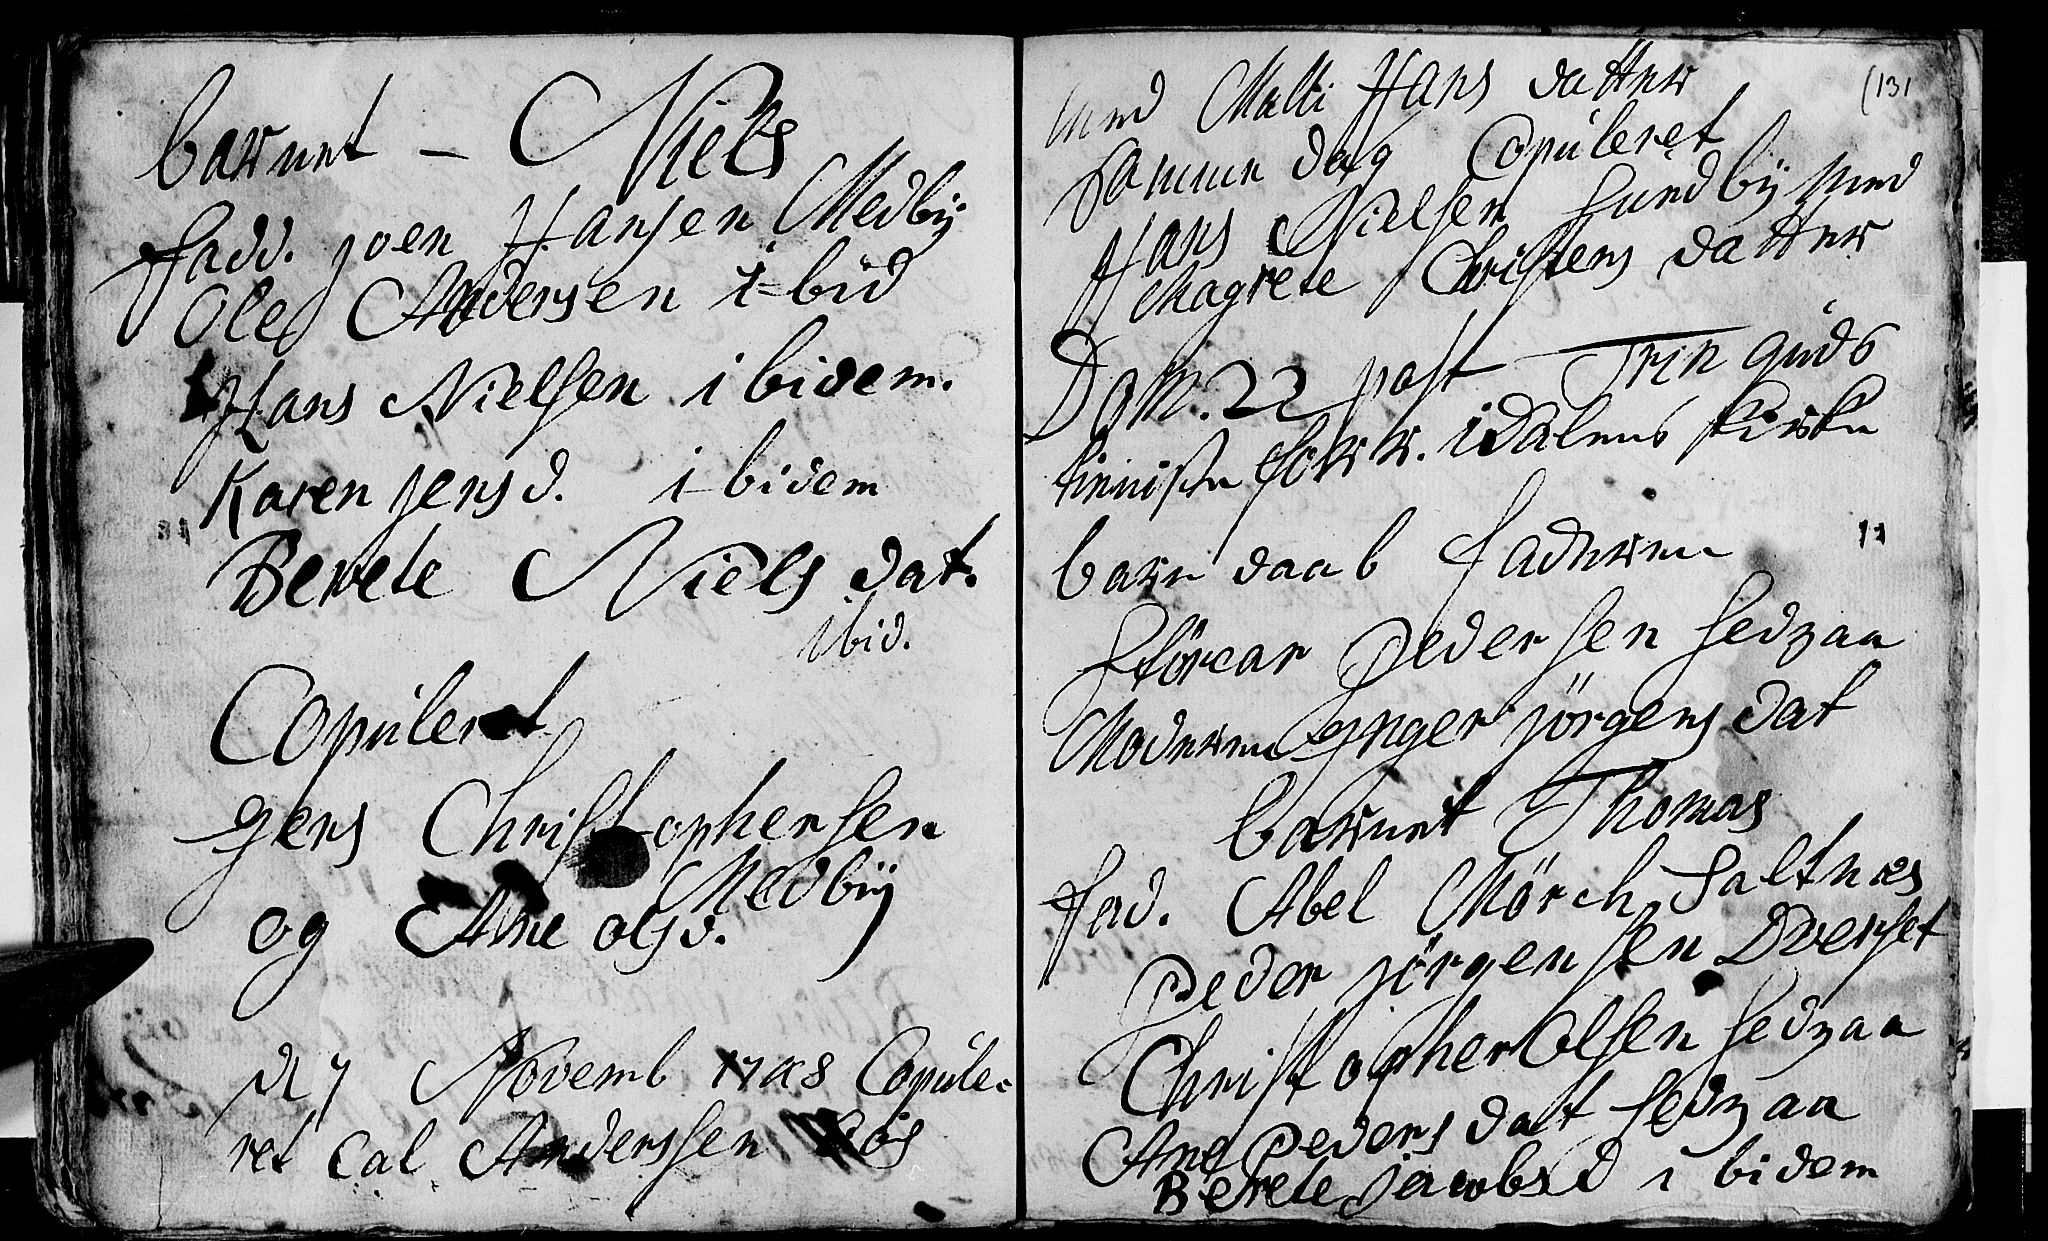 barnet – Niels
fadd. Joen Hansen Medbÿ
Ole Andersen i-bid
Hans Nielsen ibidem.
Karen Jensd. i-bidem
Berete Niels dat.
ibid.
Copuleret
Jens Christophersen
Medbÿ
og Ane olsd.
d 7 Novemb 1748 Copule-
ret Cal Anderssen
(131
med Malli Hans datter
samme dag Copuleret
Hans Nielsen sundbÿ med
Magrete Christens datter
Dom. 22 post Trin guds
tienniste forr. i Dalens Kirke
barn daab faderen 11
Störcar Pedersen sedzaa
Moderen Inger jörgens dat
barnet Thomas
fad. Abel Mörch saltnæs
Peder jörgensen Dverset
Christopher Olsen sedzaa
Ane Peders dat sedzaa
Berete jacobs D ibidem